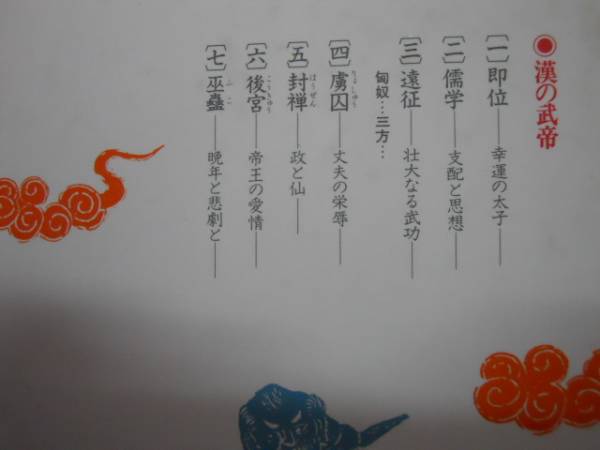 ◉漢の武帝
〔一〕即位――幸運の太子――
〔二〕儒学――支配と思想――
〔三〕遠征――壮大なる武功――
匈奴…三方…
〔四〕虜囚――丈夫の栄辱――
りょしゅう
〔五〕封禅――政と仙――
ほうぜん
〔六〕後宮――帝王の愛情――
こうきゅう
〔七〕巫蠱――晩年と悲劇と――
ふこ